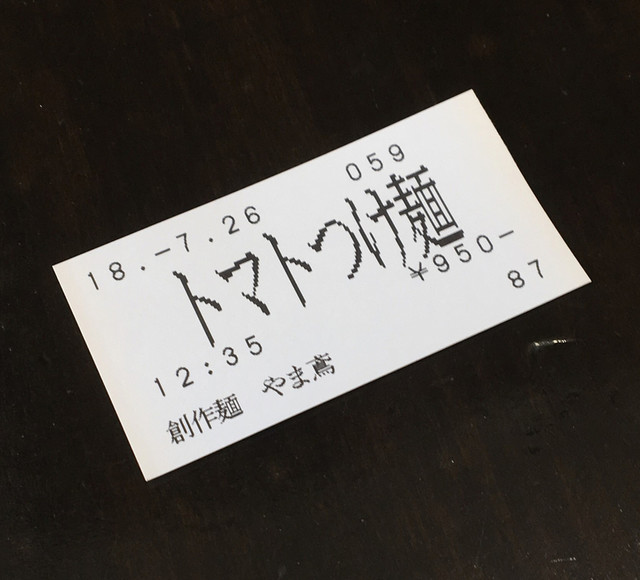 18.-7.26 059
トマトつけ麺
¥950-
12:35 87
創作麺 やま鳶